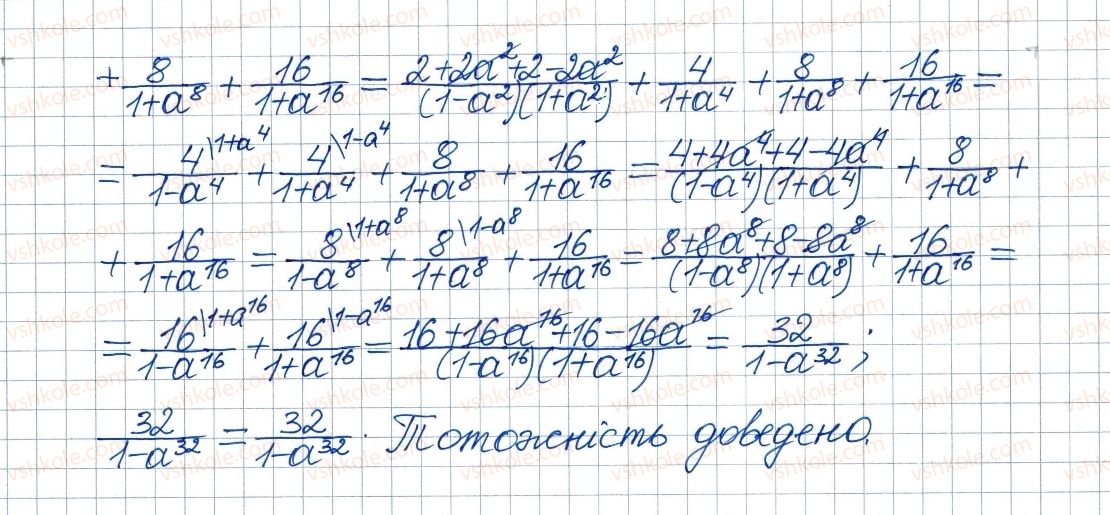 + 8/(1+a⁸) + 16/(1+a¹⁶) = (2+2a²+2-2a²)/((1-a²)(1+a²)) + 4/(1+a⁴) + 8/(1+a⁸) + 16/(1+a¹⁶) =
= 4\1+a⁴/(1-a⁴) + 4\1-a⁴/(1+a⁴) + 8/(1+a⁸) + 16/(1+a¹⁶) = (4+4a⁴+4-4a⁴)/((1-a⁴)(1+a⁴)) + 8/(1+a⁸) +
+ 16/(1+a¹⁶) = 8\1+a⁸/(1-a⁸) + 8\1-a⁸/(1+a⁸) + 16/(1+a¹⁶) = (8+8a⁸+8-8a⁸)/((1-a⁸)(1+a⁸)) + 16/(1+a¹⁶) =
= 16\1+a¹⁶/(1-a¹⁶) + 16\1-a¹⁶/(1+a¹⁶) = (16+16a¹⁶+16-16a¹⁶)/((1-a¹⁶)(1+a¹⁶)) = 32/(1-a³²);
32/(1-a³²) = 32/(1-a³²). Тотожність доведено.